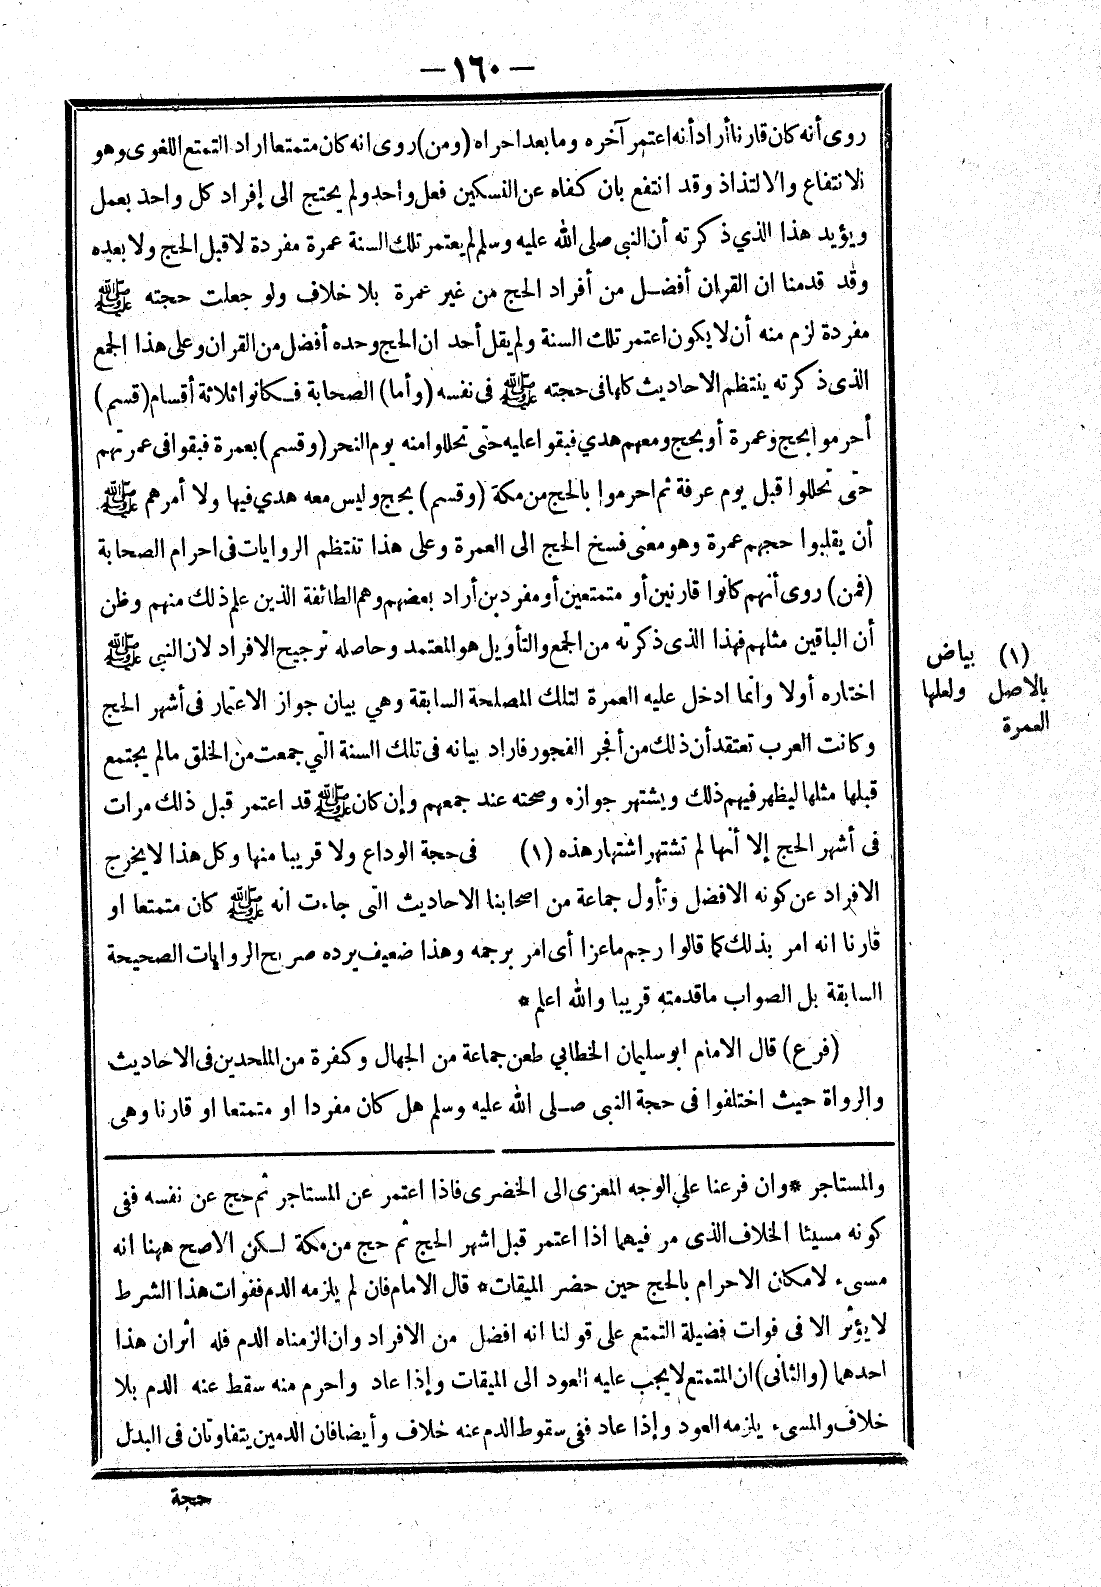 — ١٦٠ —
روى أنه كان قارنا أراد أنه اعتمر آخره وما بعد احراه (ومن) روى انه كان متمتعا اراد التمتع اللغوى وهو
الانتفاع والالتذاذ وقد انتفع بان كفاه عن النسكين فعل واحد ولم يحتج الى إفراد كل واحد بعمل
ويؤيد هذا الذي ذكرته أن النبى صلى الله عليه وسلم لم يعتمر تلك السنة عمرة مفردة لا قبل الحج ولا بعده
وقد قدمنا ان القران أفضل من أفراد الحج من غير عمرة بلا خلاف ولو جعلت حجته ﷺ
مفردة لزم منه أن لا يكون اعتمر تلك السنة ولم يقل أحد ان الحج وحده أفضل من القران وعلى هذا الجمع
الذى ذكرته ينتظم الاحاديث كلها فى حجته ﷺ فى نفسه (وأما) الصحابة فكانوا ثلاثة أقسام (قسم)
أحرموا بحج وعمرة أو بحج ومعهم هدي فبقوا عليه حتى تحللوا منه يوم النحر (وقسم) بعمرة فبقوا فى عمرتهم
حتى تحللوا قبل يوم عرفة ثم احرموا بالحج من مكة (وقسم) بحج وليس معه هدي فيها ولا أمرهم ﷺ
أن يقلبوا حجهم عمرة وهو معنى فسخ الحج الى العمرة وعلى هذا تنتظم الروايات فى احرام الصحابة
(فمن) روى أنهم كانوا قارنين أو متمتعين أو مفردين أراد بعضهم وهم الطائفة الذين علم ذلك منهم وظن
أن الباقين مثلهم فهذا الذى ذكرته من الجمع والتأويل هو المعتمد وحاصله ترجيح الافراد لان النبى ﷺ
اختاره أولا وانما ادخل عليه العمرة لتلك المصلحة السابقة وهي بيان جواز الاعتمار فى أشهر الحج
وكانت العرب تعتقد أن ذلك من أفجر الفجور فاراد بيانه فى تلك السنة التي جمعت من الخلق مالم يجتمع
قبلها مثلها ليظهر فيهم ذلك ويشتهر جوازه وصحته عند جمعهم وإن كان ﷺ قد اعتمر قبل ذلك مرات
فى أشهر الحج إلا أنها لم تشتهر اشتهار هذه (١) فى حجة الوداع ولا قريبا منها وكل هذا لا يخرج
الافراد عن كونه الافضل وتأول جماعة من اصحابنا الاحاديث التى جاءت انه ﷺ كان متمتعا او
قارنا انه امر بذلك كما قالوا رجم ماعزا أى امر برجمه وهذا ضعيف يرده صريح الروايات الصحيحة
السابقة بل الصواب ماقدمته قريبا والله اعلم *
(فرع) قال الامام ابو سليمان الخطابي طعن جماعة من الجهال وكفرة من الملحدين فى الاحاديث
والرواة حيث اختلفوا فى حجة النبى صلى الله عليه وسلم هل كان مفردا او متمتعا او قارنا وهى
(١) بياض
بالاصل ولعلها
العمرة
والمستاجر * وان فرعنا علي الوجه المعزى الى الخضرى فاذا اعتمر عن المستاجر ثم حج عن نفسه ففى
كونه مسيئا الخلاف الذى مر فيهما اذا اعتمر قبل اشهر الحج ثم حج من مكة لكن الاصح ههنا انه
مسىء لامكان الاحرام بالحج حين حضر الميقات * قال الامام فان لم يلزمه الدم ففوات هذا الشرط
لا يؤثر الا فى فوات فضيلة التمتع على قولنا انه افضل من الافراد وان الزمناه الدم فله اثران هذا
احدهما (والثانى) ان المتمتع لا يجب عليه العود الى الميقات وإذا عاد واحرم منه سقط عنه الدم بلا
خلاف والمسىء يلزمه العود وإذا عاد ففى سقوط الدم عنه خلاف وأيضا فان الدمين يتفاوتان فى البدل
حجة